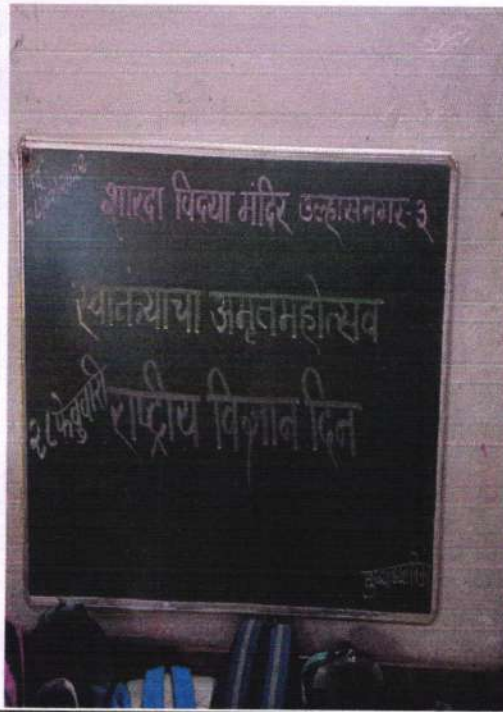 शारदा विद्या मंदिर उल्हासनगर-३
स्वातंत्र्याचा अमृतमहोत्सव
२८ फेब्रुवारी राष्ट्रीय विज्ञान दिन